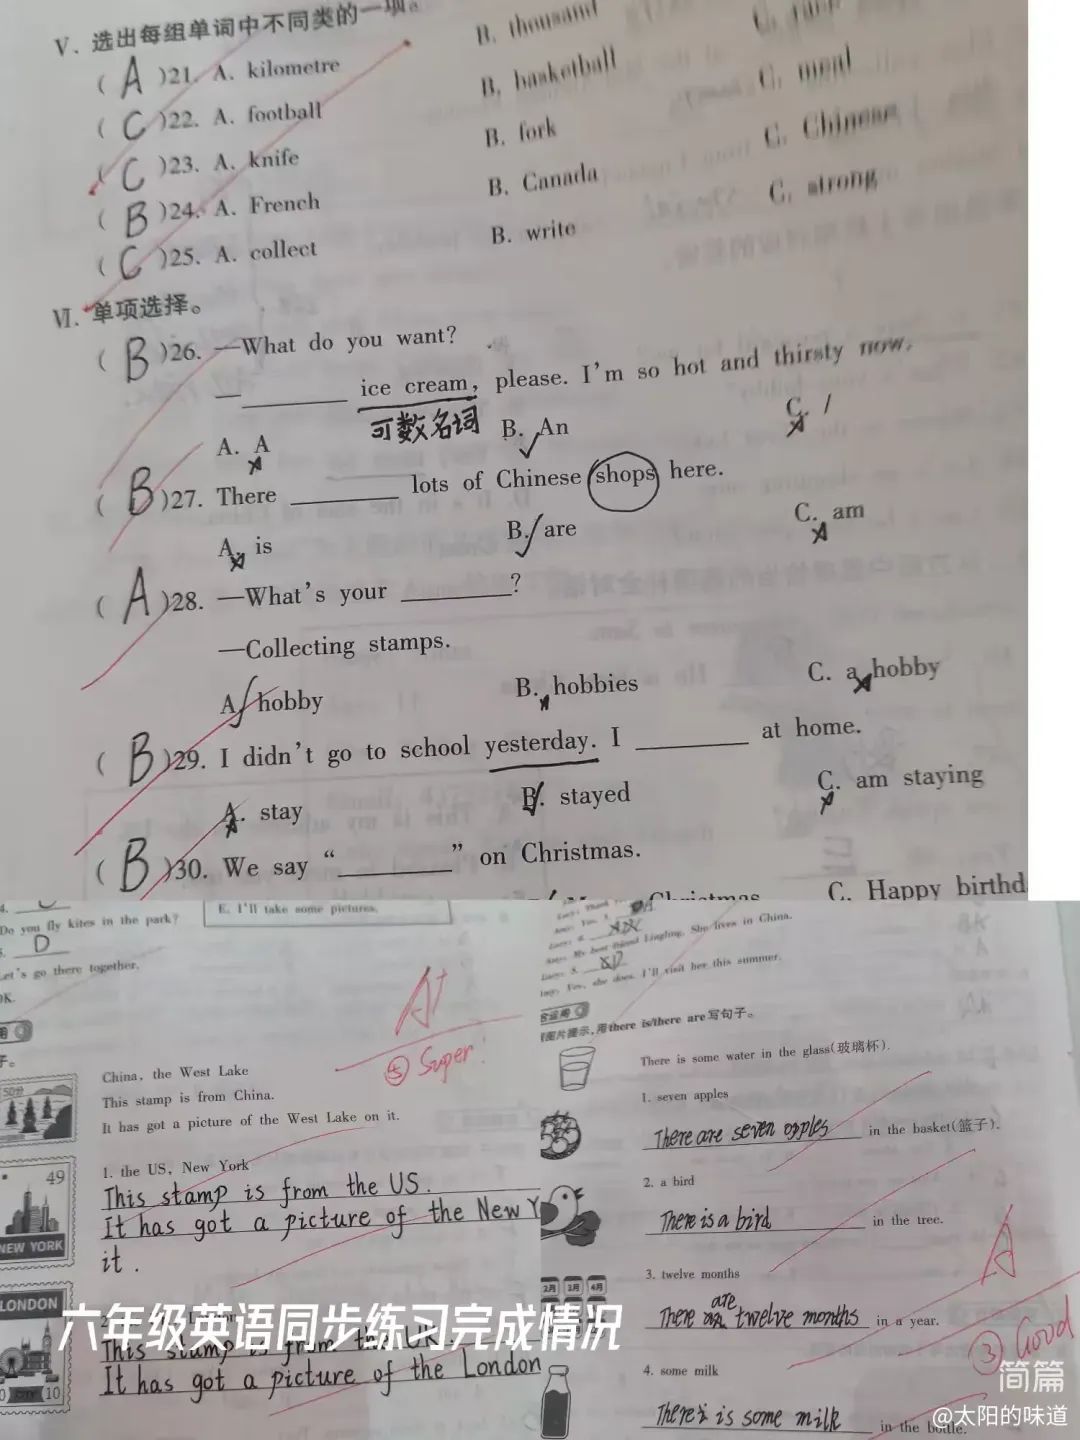 V. 选出每组单词中不同类的一项。
( A )21. A. kilometre B. thousand
( C )22. A. football B. basketball C. meal
( C )23. A. knife B. fork C. Chinese
( B )24. A. French B. Canada C. strong
( C )25. A. collect B. write
VI. 单项选择。
( B )26. —What do you want?
—________ ice cream, please. I'm so hot and thirsty now.
可数名词
A. A B. An C. /
( B )27. There ________ lots of Chinese shops here.
A. is B. are C. am
( A )28. —What's your ________?
—Collecting stamps.
A. hobby B. hobbies C. a hobby
( B )29. I didn't go to school yesterday. I ________ at home.
A. stay B. stayed C. am staying
( B )30. We say “________” on Christmas.
Christmas C. Happy birthd
4.
Do you fly kites in the park?
E. I'll take some pictures.
D
Let's go there together.
OK.
A+
⑤ Super!
China, the West Lake
This stamp is from China.
It has got a picture of the West Lake on it.
50分
1. the US, New York
This stamp is from the US.
It has got a picture of the New Y
it.
49
NEW YORK
LONDON
2.
This stamp is from the UK
It has got a picture of the London
10
六年级英语同步练习完成情况
My best friend Lingling. She lives in China.
Yes, she does. I'll visit her this summer.
图片提示，用there is/there are写句子。
There is some water in the glass(玻璃杯).
1. seven apples
There are seven apples in the basket(篮子).
2. a bird
There is a bird in the tree.
3. twelve months
are
There twelve months in a year.
2月 3月 4月
4. some milk
There is some milk in the bottle.
A
③ Good
简篇
@太阳的味道